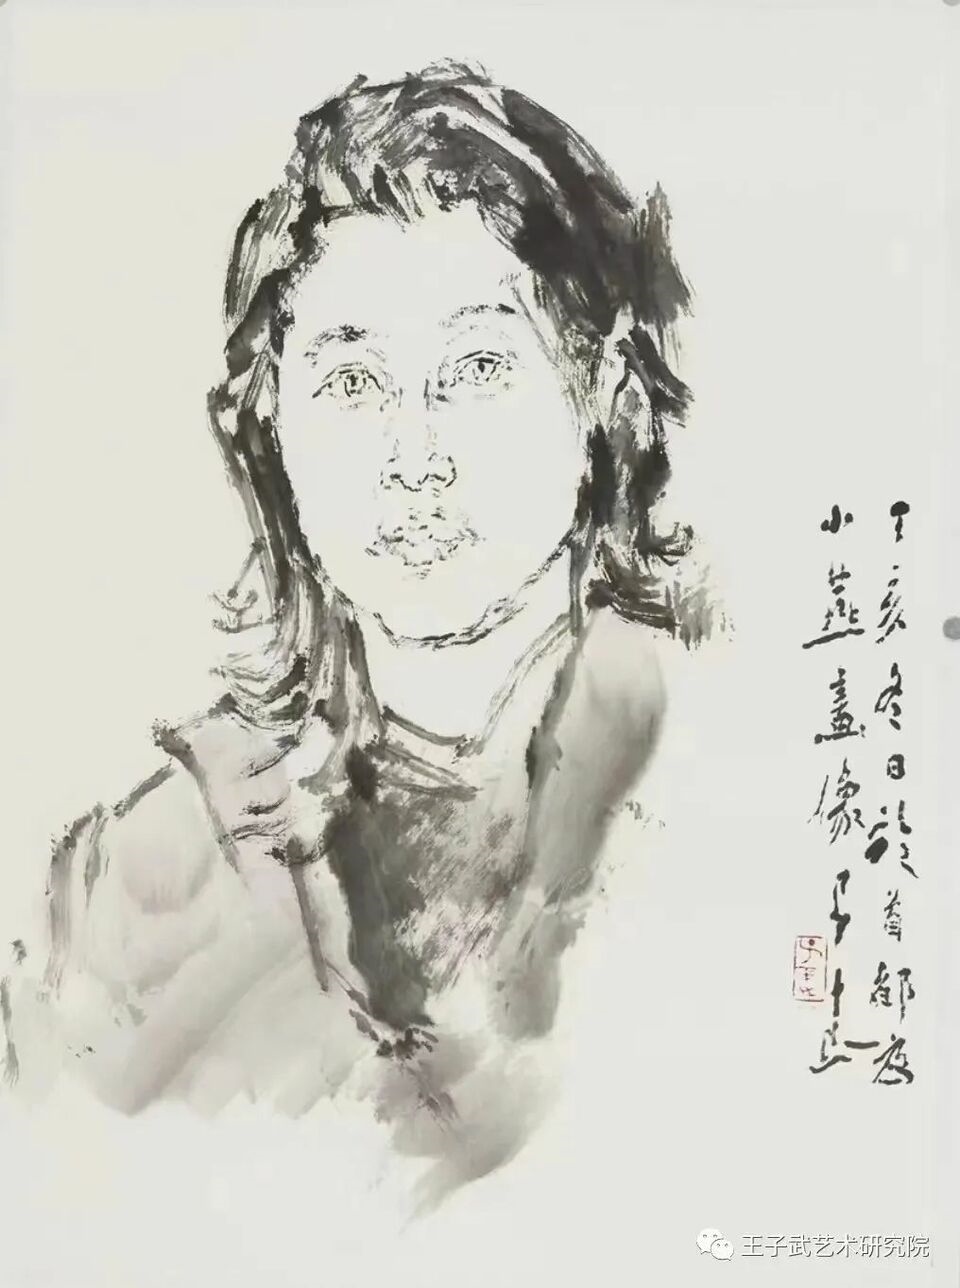 丁亥冬日於首都为
小燕畫像子武
子武
王子武艺术研究院